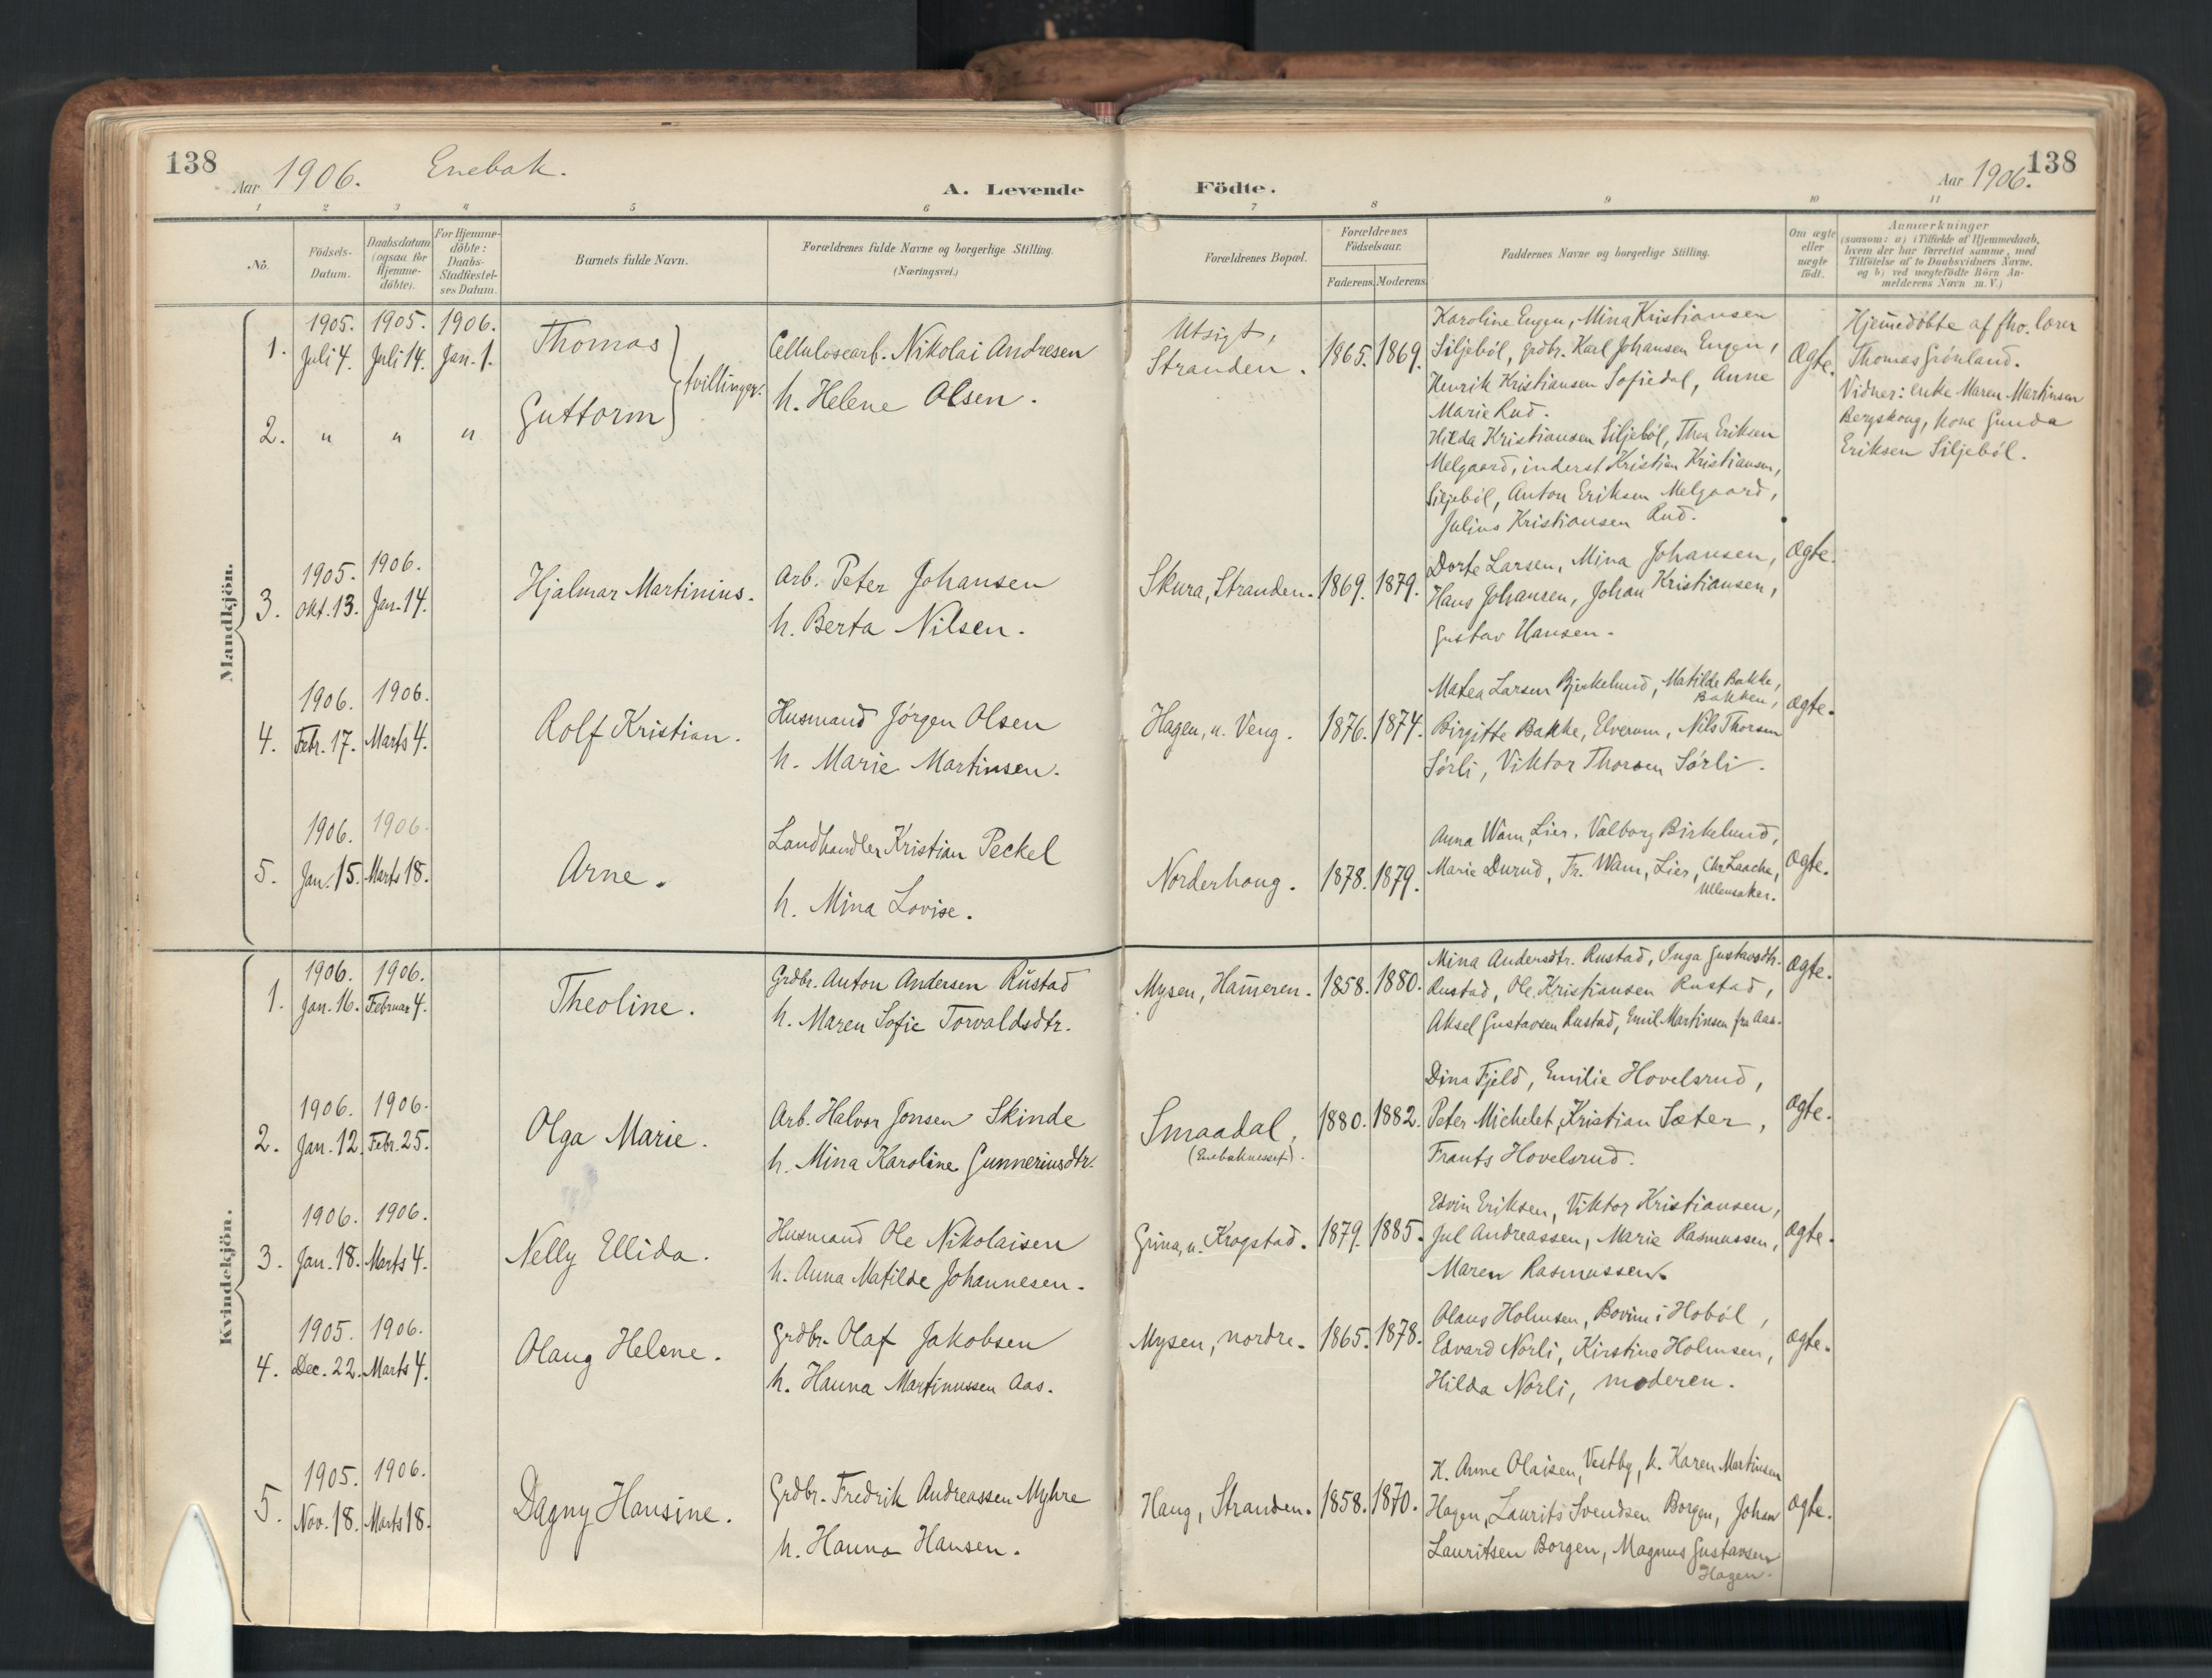 138
Aar 1906. Enebak.
A. Levende Födte.
Aar 1906.
138
1 2 3 4 5 6 7 8 9 10 11
No.
Födsels-Datum.
Daabsdatum (ogsaa for Hjemme-döbte).
For Hjemme-döbte: Daabs-Stadfæstel-ses Datum.
Barnets fulde Navn.
Forældrenes fulde Navne og borgerlige Stilling.
(Næringsvei.)
Forældrenes Bopæl.
Forældrenes Födselsaar.
Faderens. Moderens.
Faddernes Navne og borgerlige Stilling.
Om ægte eller uægte födt.
Anmærkninger
(saasom: a) i Tilfælde af Hjemmedaab,
hvem der har forrettet samme, med
Tilföielse af to Daabsvidners Navne,
og b) ved uægtefödte Börn An-
melderens Navn m. V.)
Mandkjön.
1. 1905. Juli 4. 1905. Juli 14. 1906. Jan. 1.
Thomas
2. " " "
Guttorm
tvillinger.
Cellulosearb. Nikolai Andresen
h. Helene Olsen.
Utsigt,
Stranden.
1865. 1869.
Karoline Engen, Mina Kristiansen
Siljeböl, grdbr. Karl Johansen Engen,
Henrik Kristiansen Sofiedal, Anne
Marie Rud.
Hilda Kristiansen Siljeböl, Thea Eriksen
Melgaard, inderst Kristian Kristiansen,
Siljeböl, Anton Eriksen Melgaard,
Julius Kristiansen Rud.
Ægte.
Hjemmedöbte af fho. lærer
Thomas Grönland.
Vidner: enke Maren Martinsen
Bergskaug, kone Gunda
Eriksen Siljeböl.
3. 1905. Okt. 13. 1906. Jan. 14.
Hjalmar Martinius.
Arb. Peter Johansen
h. Berta Nilsen.
Skura, Stranden.
1869. 1879.
Dorte Larsen, Mina Johansen,
Hans Johansen, Johan Kristiansen,
Gustav Hansen.
Ægte.
4. 1906. Febr. 17. 1906. Marts 4.
Rolf Kristian.
Husmand Jörgen Olsen
h. Marie Martinsen.
Hagen, u. Veng.
1876. 1874.
Matea Larsen Bjerkelund, Matilde Bakke,
Bakken,
Birgitte Bakke, Elverum, Nils Thorsen
Sörli, Viktor Thorsen Sörli.
Ægte.
5. 1906. Jan. 15. 1906. Marts 18.
Arne.
Landhandler Kristian Peckel
h. Mina Lovise.
Norderhoug.
1878. 1879.
Anna Wam, Lier. Valborg Birkelund,
Marie Durud, Fr. Wam, Lier, Chr. Laache,
Ullensaker.
Ægte.
Kvindekjön.
1. 1906. Jan. 16. 1906. Februar 4.
Theoline.
Grdbr. Anton Andersen Rustad
h. Maren Sofie Torvaldsdtr.
Mysen, Hameren.
1858. 1880.
Mina Andersdtr. Rustad, Inga Gustavsdtr.
Rustad, Ole Kristiansen Rustad,
Aksel Gustavsen Rustad, Emil Martinsen fra Aas.
Ægte.
2. 1906. Jan. 12. 1906. Febr. 25.
Olga Marie.
Arb. Halvor Jonsen Skinde
h. Mina Karoline Gunneriusdtr.
Smaadal,
(Enebaknesset).
1880. 1882.
Dina Fjeld, Emilie Hovelsrud,
Peter Michelet, Kristian Sæter,
Frants Hovelsrud.
Ægte.
3. 1906. Jan. 18. 1906. Marts 4.
Nelly Ellida.
Husmand Ole Nikolaisen
h. Anna Matilde Johannesen.
Grina, u. Krogstad.
1879. 1885.
Edvin Eriksen, Viktor Kristiansen,
Jul Andreassen, Marie Rasmussen,
Maren Rasmussen.
Ægte.
4. 1905. Dec. 22. 1906. Marts 4.
Olaug Helene.
Grdbr. Olaf Jakobsen
h. Hanna Martinussen Aas.
Mysen, nordre.
1865. 1878.
Olaus Holmsen, Bovim i Hoböl,
Edvard Norli, Kirstine Holmsen,
Hilda Norli, moderen.
Ægte.
5. 1905. Nov. 18. 1906. Marts 18.
Dagny Hansine.
Grdbr. Fredrik Andreassen Myhre
h. Hanna Hansen.
Haug, Stranden.
1858. 1870.
K. Anne Olaisen, Vestby, k. Karen Martinsen
Hagen, Laurits Svendsen Borgen, Johan
Lauritsen Borgen, Magnus Gustavsen
Hagen.
Ægte.